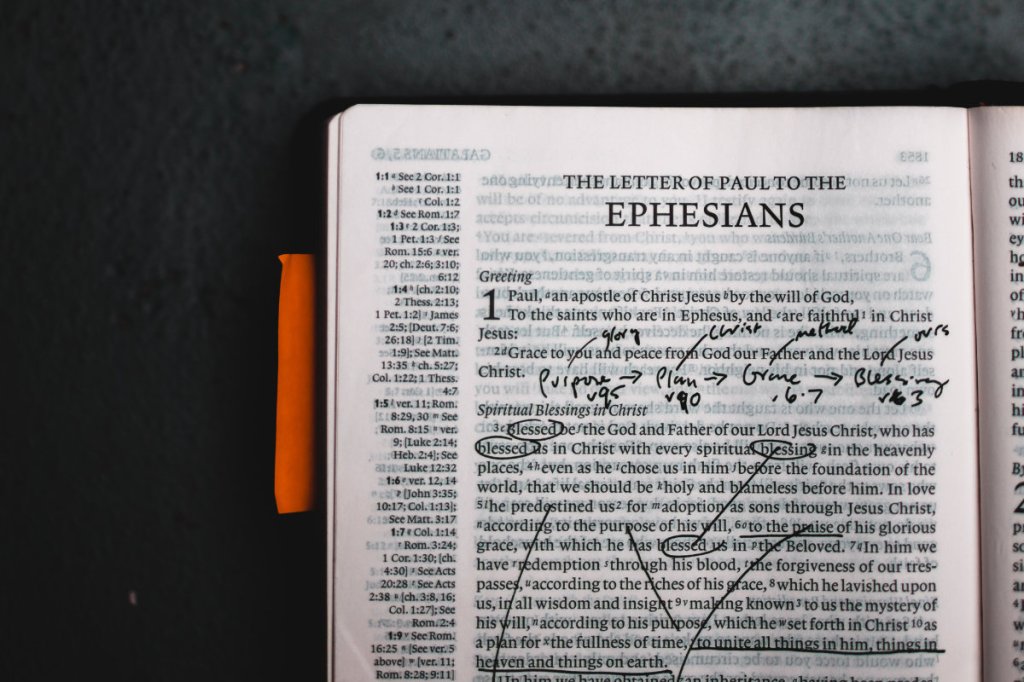 THE LETTER OF PAUL TO THE
EPHESIANS
Greeting
1 Paul, a an apostle of Christ Jesus b by the will of God,
To the saints who are in Ephesus, and c are faithful 1 in Christ
Jesus:
glory Christ method ours
2 d Grace to you and peace from God our Father and the Lord Jesus
Christ.
Purpose → Plan → Grace → Blessing
v. 6-7
Spiritual Blessings in Christ
3 e Blessed be f the God and Father of our Lord Jesus Christ, who has
blessed us in Christ with every spiritual blessing g in the heavenly
places, 4 h even as he i chose us in him j before the foundation of the
world, that we should be k holy and blameless before him. In love
5 l he predestined us 2 for m adoption as sons through Jesus Christ,
n according to the purpose of his will, 6 o to the praise of his glorious
grace, with which he has blessed us in p the Beloved. 7 q In him we
have r redemption s through his blood, t the forgiveness of our tres-
passes, u according to the riches of his grace, 8 which he lavished upon
us, in all wisdom and insight 9 v making known 3 to us the mystery of
his will, n according to his purpose, which he w set forth in Christ 10 as
a plan for x the fullness of time, y to unite all things in him, things in
heaven and things on earth.
In him we have obtained an inheritance, having been
1:1 a See 2 Cor. 1:1
b See 1 Cor. 1:1
c Col. 1:2
1:2 d See Rom. 1:7
1:3 e 2 Cor. 1:3;
1 Pet. 1:3 f See
Rom. 15:6 g ver.
20; ch. 2:6; 3:10;
6:12
1:4 h [ch. 2:10;
2 Thess. 2:13;
1 Pet. 1:2] i James
2:5; [Deut. 7:6;
26:18] j [2 Tim.
1:9]; See Matt.
13:35 k ch. 5:27;
Col. 1:22; 1 Thess.
4:7
1:5 l ver. 11; Rom.
8:29, 30 m See
Rom. 8:15 n ver.
9; [Luke 2:14;
Heb. 2:4]; See
Luke 12:32
1:6 o ver. 12, 14
p [John 3:35;
10:17; Col. 1:13];
See Matt. 3:17
1:7 q Col. 1:14
r Rom. 3:24;
1 Cor. 1:30; [ch.
4:30] s See Acts
20:28 t See Acts
2:38 u [ch. 3:8, 16;
Col. 1:27]; See
Rom. 2:4
1:9 v See Rom.
16:25 n [See ver. 5
above] w [ver. 11;
Rom. 8:28; 9:11]